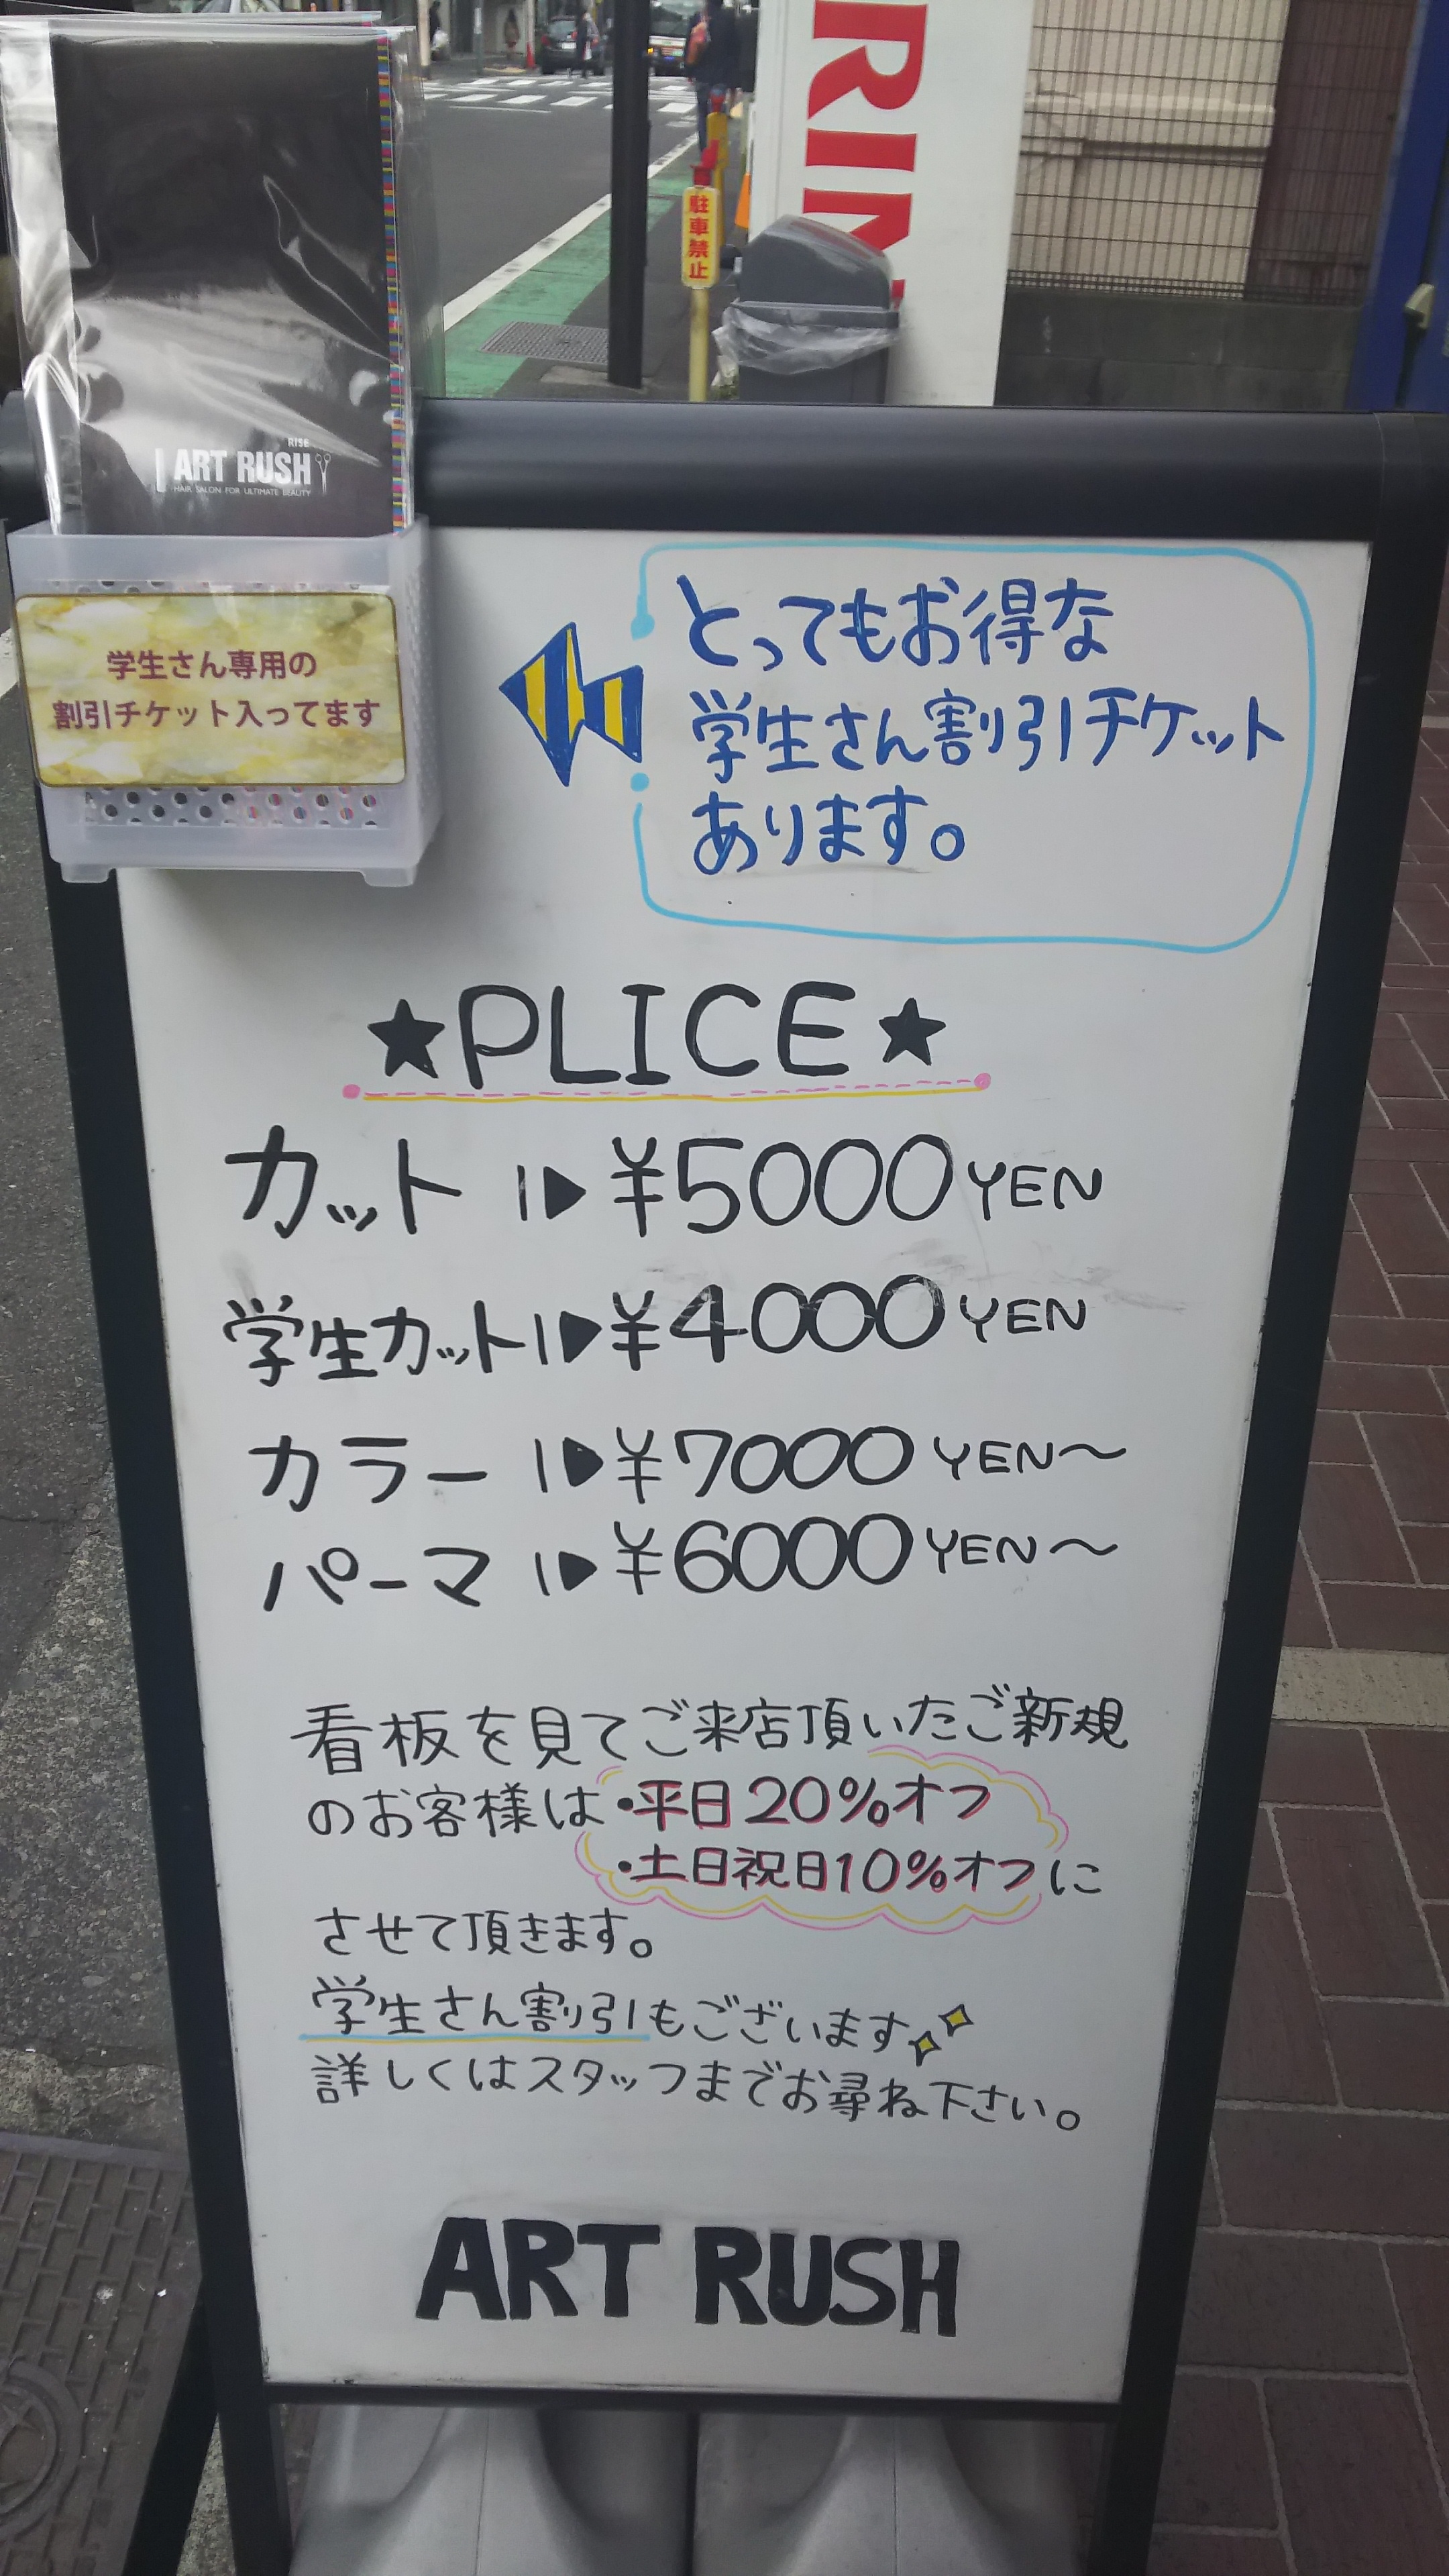 RIN
駐車禁止
RISE
ART RUSH
HAIR SALON FOR ULTIMATE BEAUTY
学生さん専用の
割引チケット入ってます
とってもお得な
学生さん割引チケット
あります。
★PLICE★
カット ▶ ¥5000 YEN
学生カット ▶ ¥4000 YEN
カラー ▶ ¥7000 YEN〜
パーマ ▶ ¥6000 YEN〜
看板を見てご来店頂いたご新規
のお客様は・平日20%オフ
・土日祝日10%オフに
させて頂きます。
学生さん割引もございます
詳しくはスタッフまでお尋ね下さい。
ART RUSH